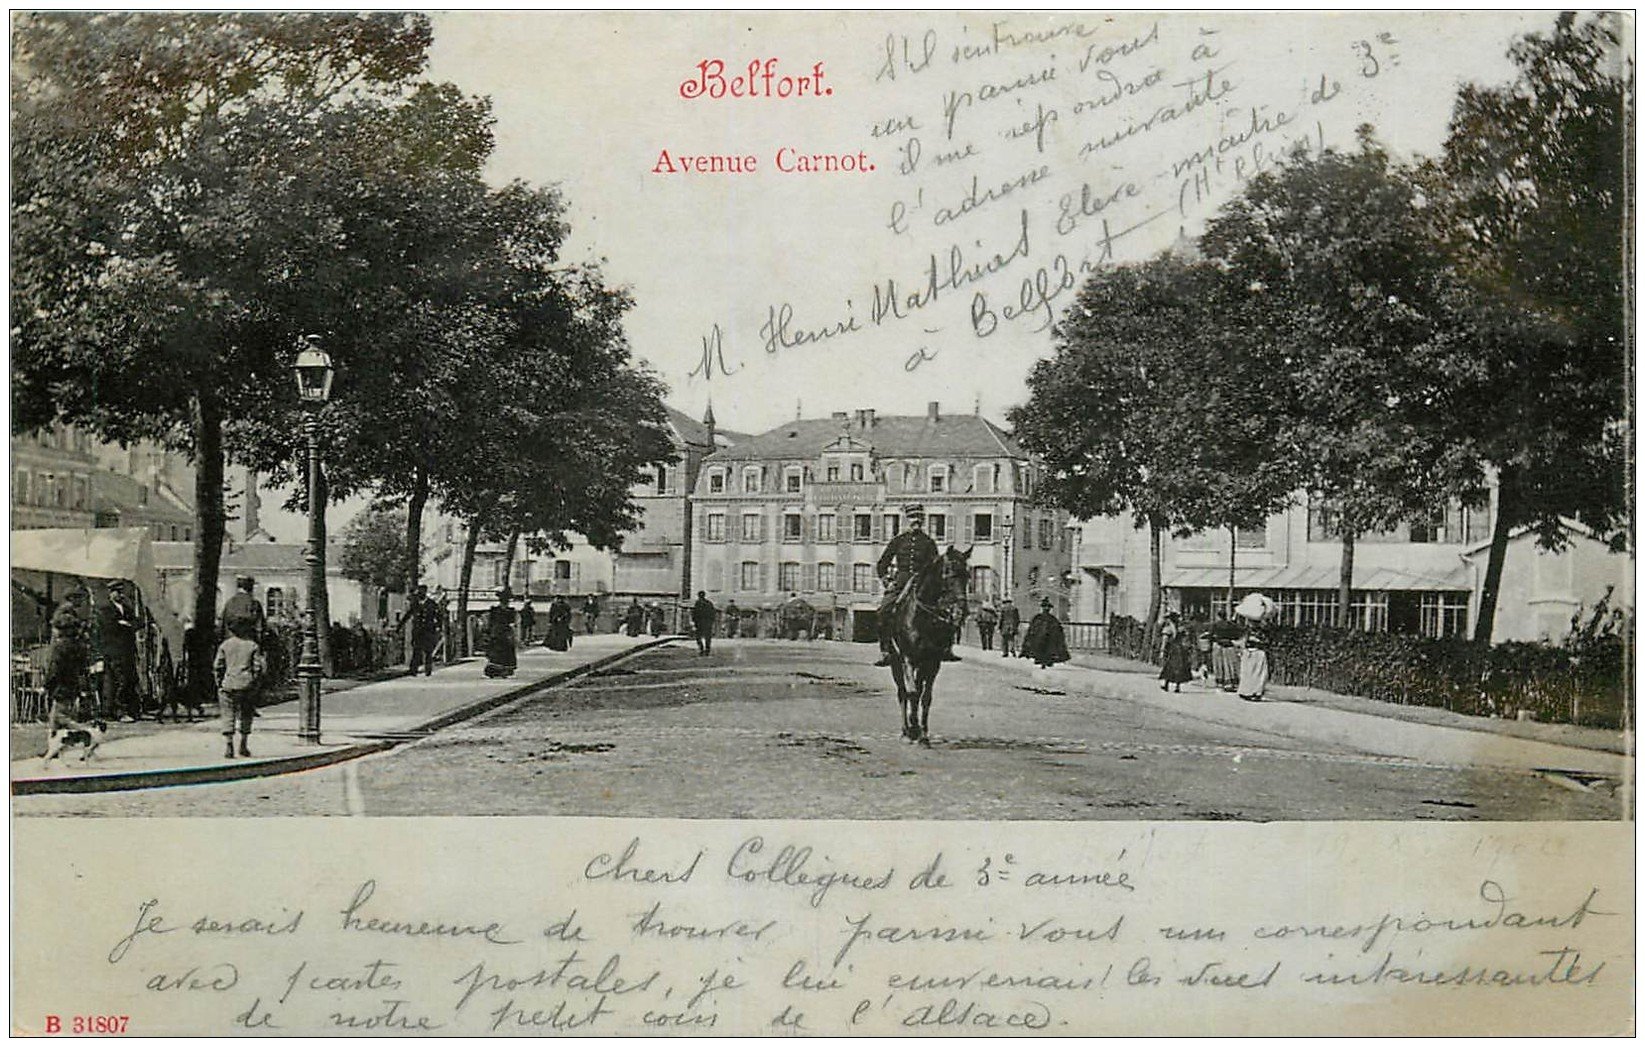 Belfort.
Avenue Carnot.
S'il s'en trouve
un parmi vous
il me répondra à
l'adresse suivante
M. Henri Mathieu Elève-maître de 3e
à Belfort (Ht Rhin)
chers Collègues de 3e année
Je serais heureux de trouver parmi vous un correspondant
avec cartes postales, je lui enverrais les vues intéressantes
de notre petit coin de l'alsace.
B 31807